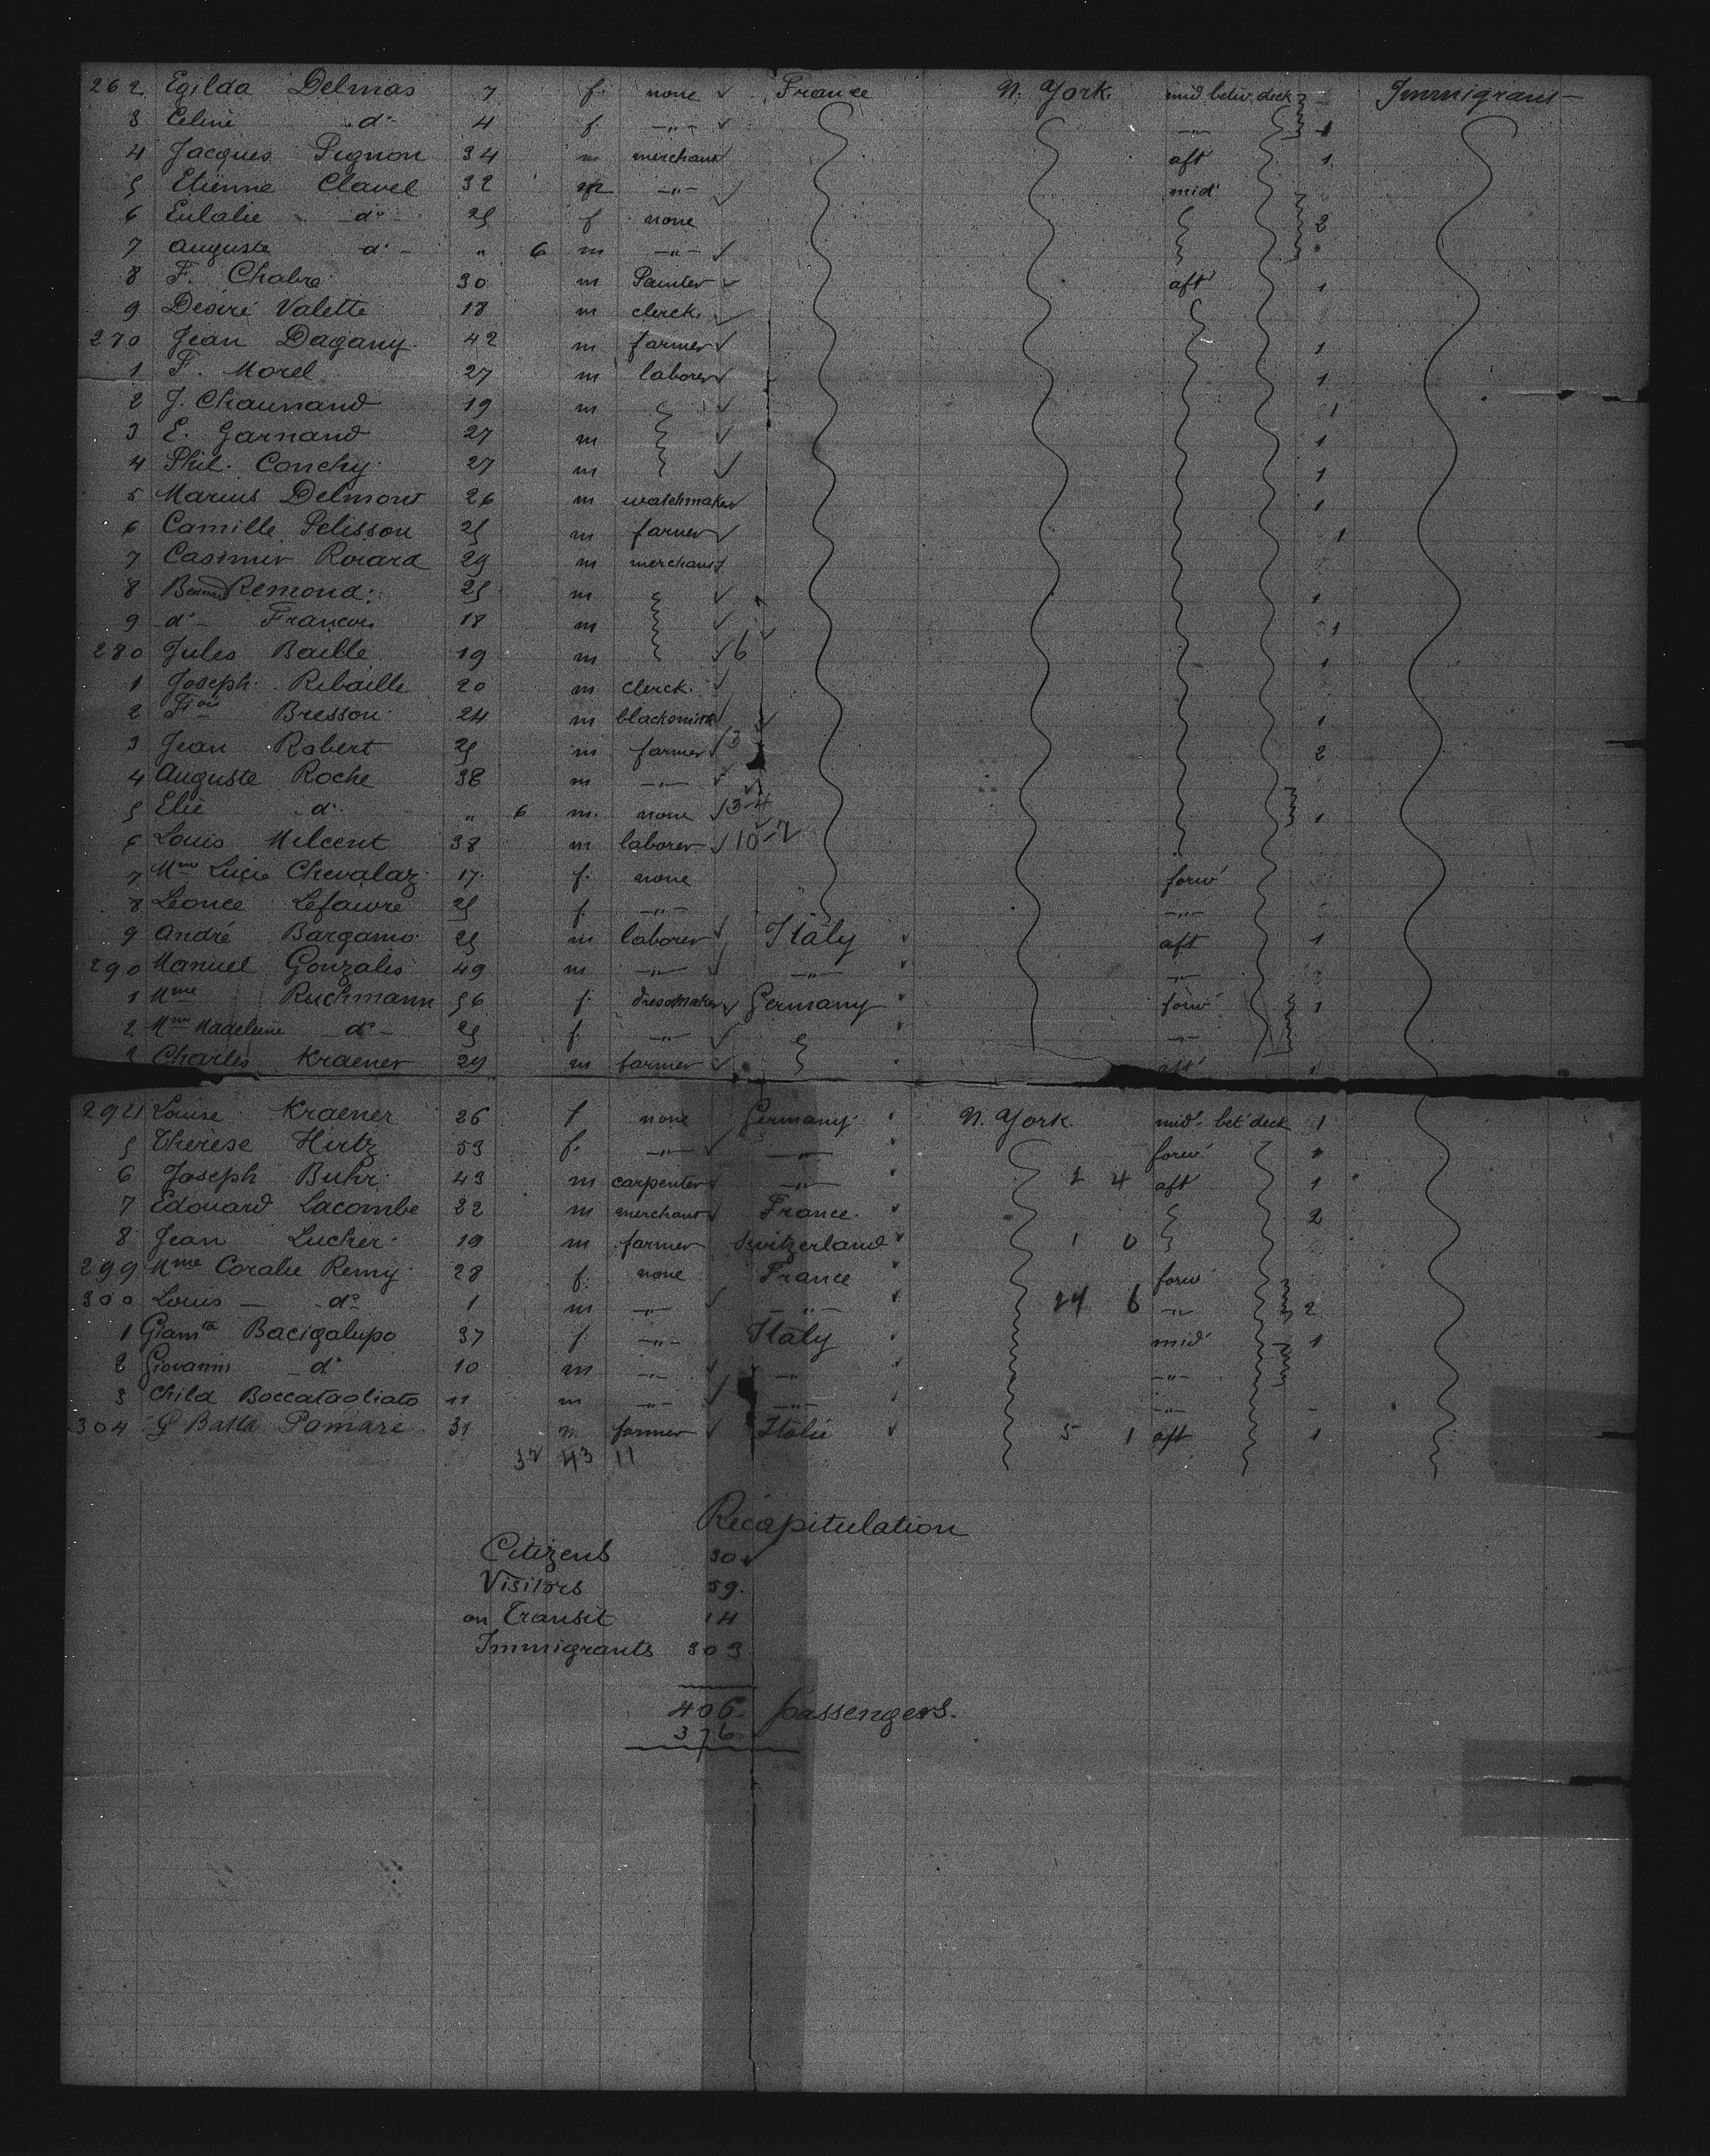 262 Egilda Delmas 7 f. none France N. York mid betw. deck Immigrant
3 Celine d° 4 f. —"— —"— 1
4 Jacques Pignon 34 m merchant aft 1
5 Etienne Clavel 32 m —"— mid
6 Eulalie d° 25 f none 2
7 Auguste d° " 6 m —"—
8 F. Chabre 30 m Painter aft 1
9 Desiré Valette 18 m clerck
270 Jean Dagany 42 m farmer 1
1 F. Morel 27 m laborer 1
2 J. Chaunand 19 m 1
3 E. Garnand 27 m 1
4 Phil. Conchy 27 m 1
5 Marius Delmont 26 m watchmaker 1
6 Camille Pelisson 25 m farmer 1
7 Casimir Roiard 29 m merchant
8 Remond 25 m 1
9 d° Francois 18 m 1
280 Jules Baille 19 m 6 1
1 Joseph Ribaille 20 m clerck
2 Bresson 24 m blacksmith 1
3 Jean Robert 25 m farmer 3 2
4 Auguste Roche 38 m —"—
5 Elie d° " 6 m. none 3-4 1
6 Louis Milcent 38 m laborer 10-7
7 Mme Lucie Chevalaz 17 f. none forw'
8 Leonce Lefaivre 25 f. —"— —"—
9 André Bargamo 25 m laborer Italy aft 1
290 Manuel Gonzales 49 m —"— —"— —"—
1 Mme Ruchmann 56 f. dressmaker Germany forw' 1
2 Mme Madeleine d° 25 f. —"— —"—
3 Charles Kraener 29 m farmer aft 1
294 Louise Kraener 26 f none Germany N. York mid. bet deck 1
5 Therese Hirtz 53 f. —"— —"— forw'
6 Joseph Buhr 43 m carpenter —"— 2 4 aft 1
7 Edouard Lacombe 22 m merchant France 2
8 Jean Lucher 19 m farmer Switzerland 1 0
299 Mme Coralie Remy 28 f. none France forw'
300 Louis d° 1 m —"— —"— 24 6 —"— 2
1 Giamta Bacigalupo 37 f. —"— Italy mid' 1
2 Giovanni d° 10 m —"— —"— —"—
3 Child Boccatagliato 11 m —"— —"— —"— -
304 G Batta Pomare 31 m farmer Italie 5 1 aft 1
32 43 11
Recapitulation
Citizens 30
Visitors 59.
on Transit 14
Immigrants 303
406. passengers.
376